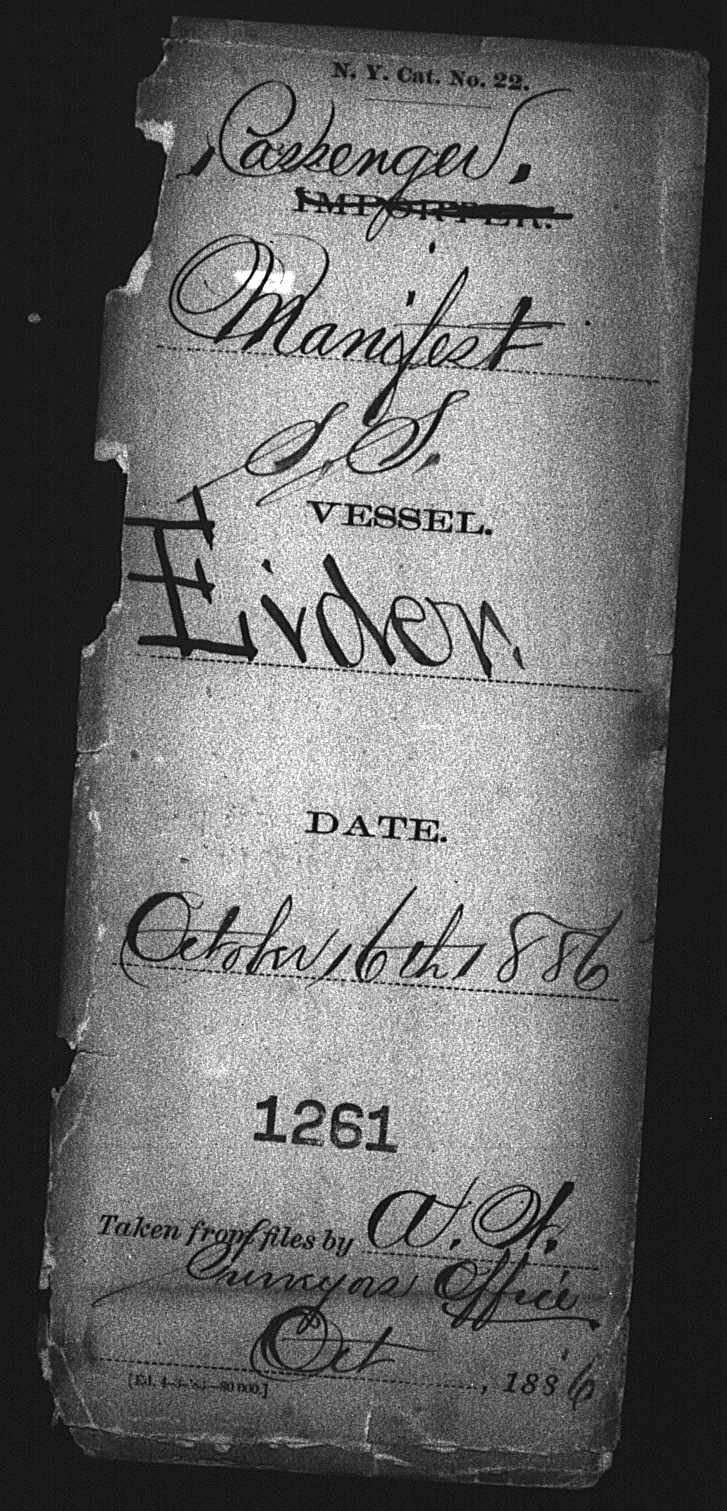 N. Y. Cat. No. 22.
Passenger
IMPORTER.
Manifest
S. S.
VESSEL.
Eider.
DATE.
October 16th 1886
1261
Taken from files by A. H.
Surveyors Office
Oct , 1886